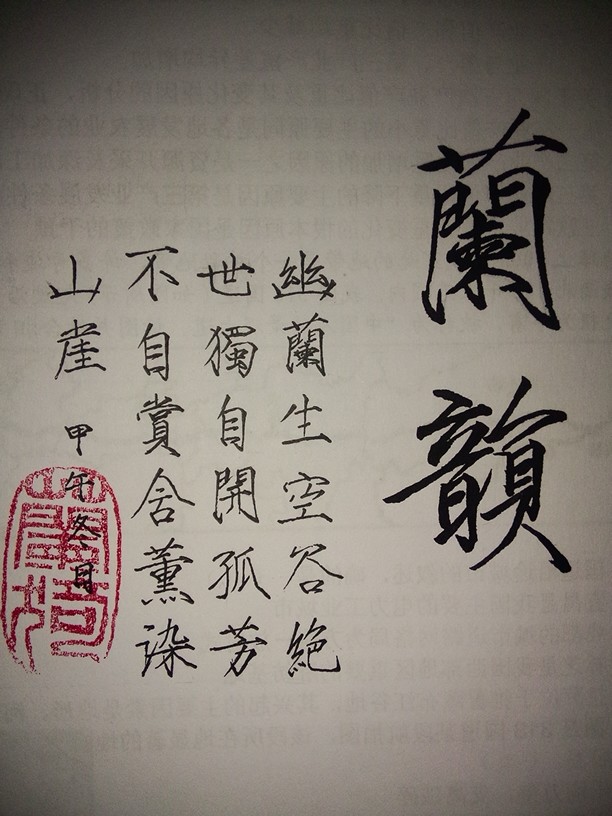 蘭韻
幽蘭生空谷絕
世獨自開孤芳
不自賞含薰染
山崖
甲午冬月